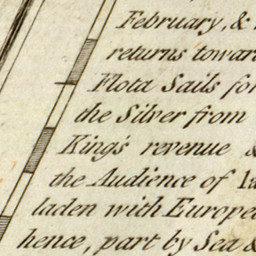 February, &
returns towar
Flota Sails fo
the Silver from
King's revenue &
the Audience of
laden with Europe
hence, part by Sea &